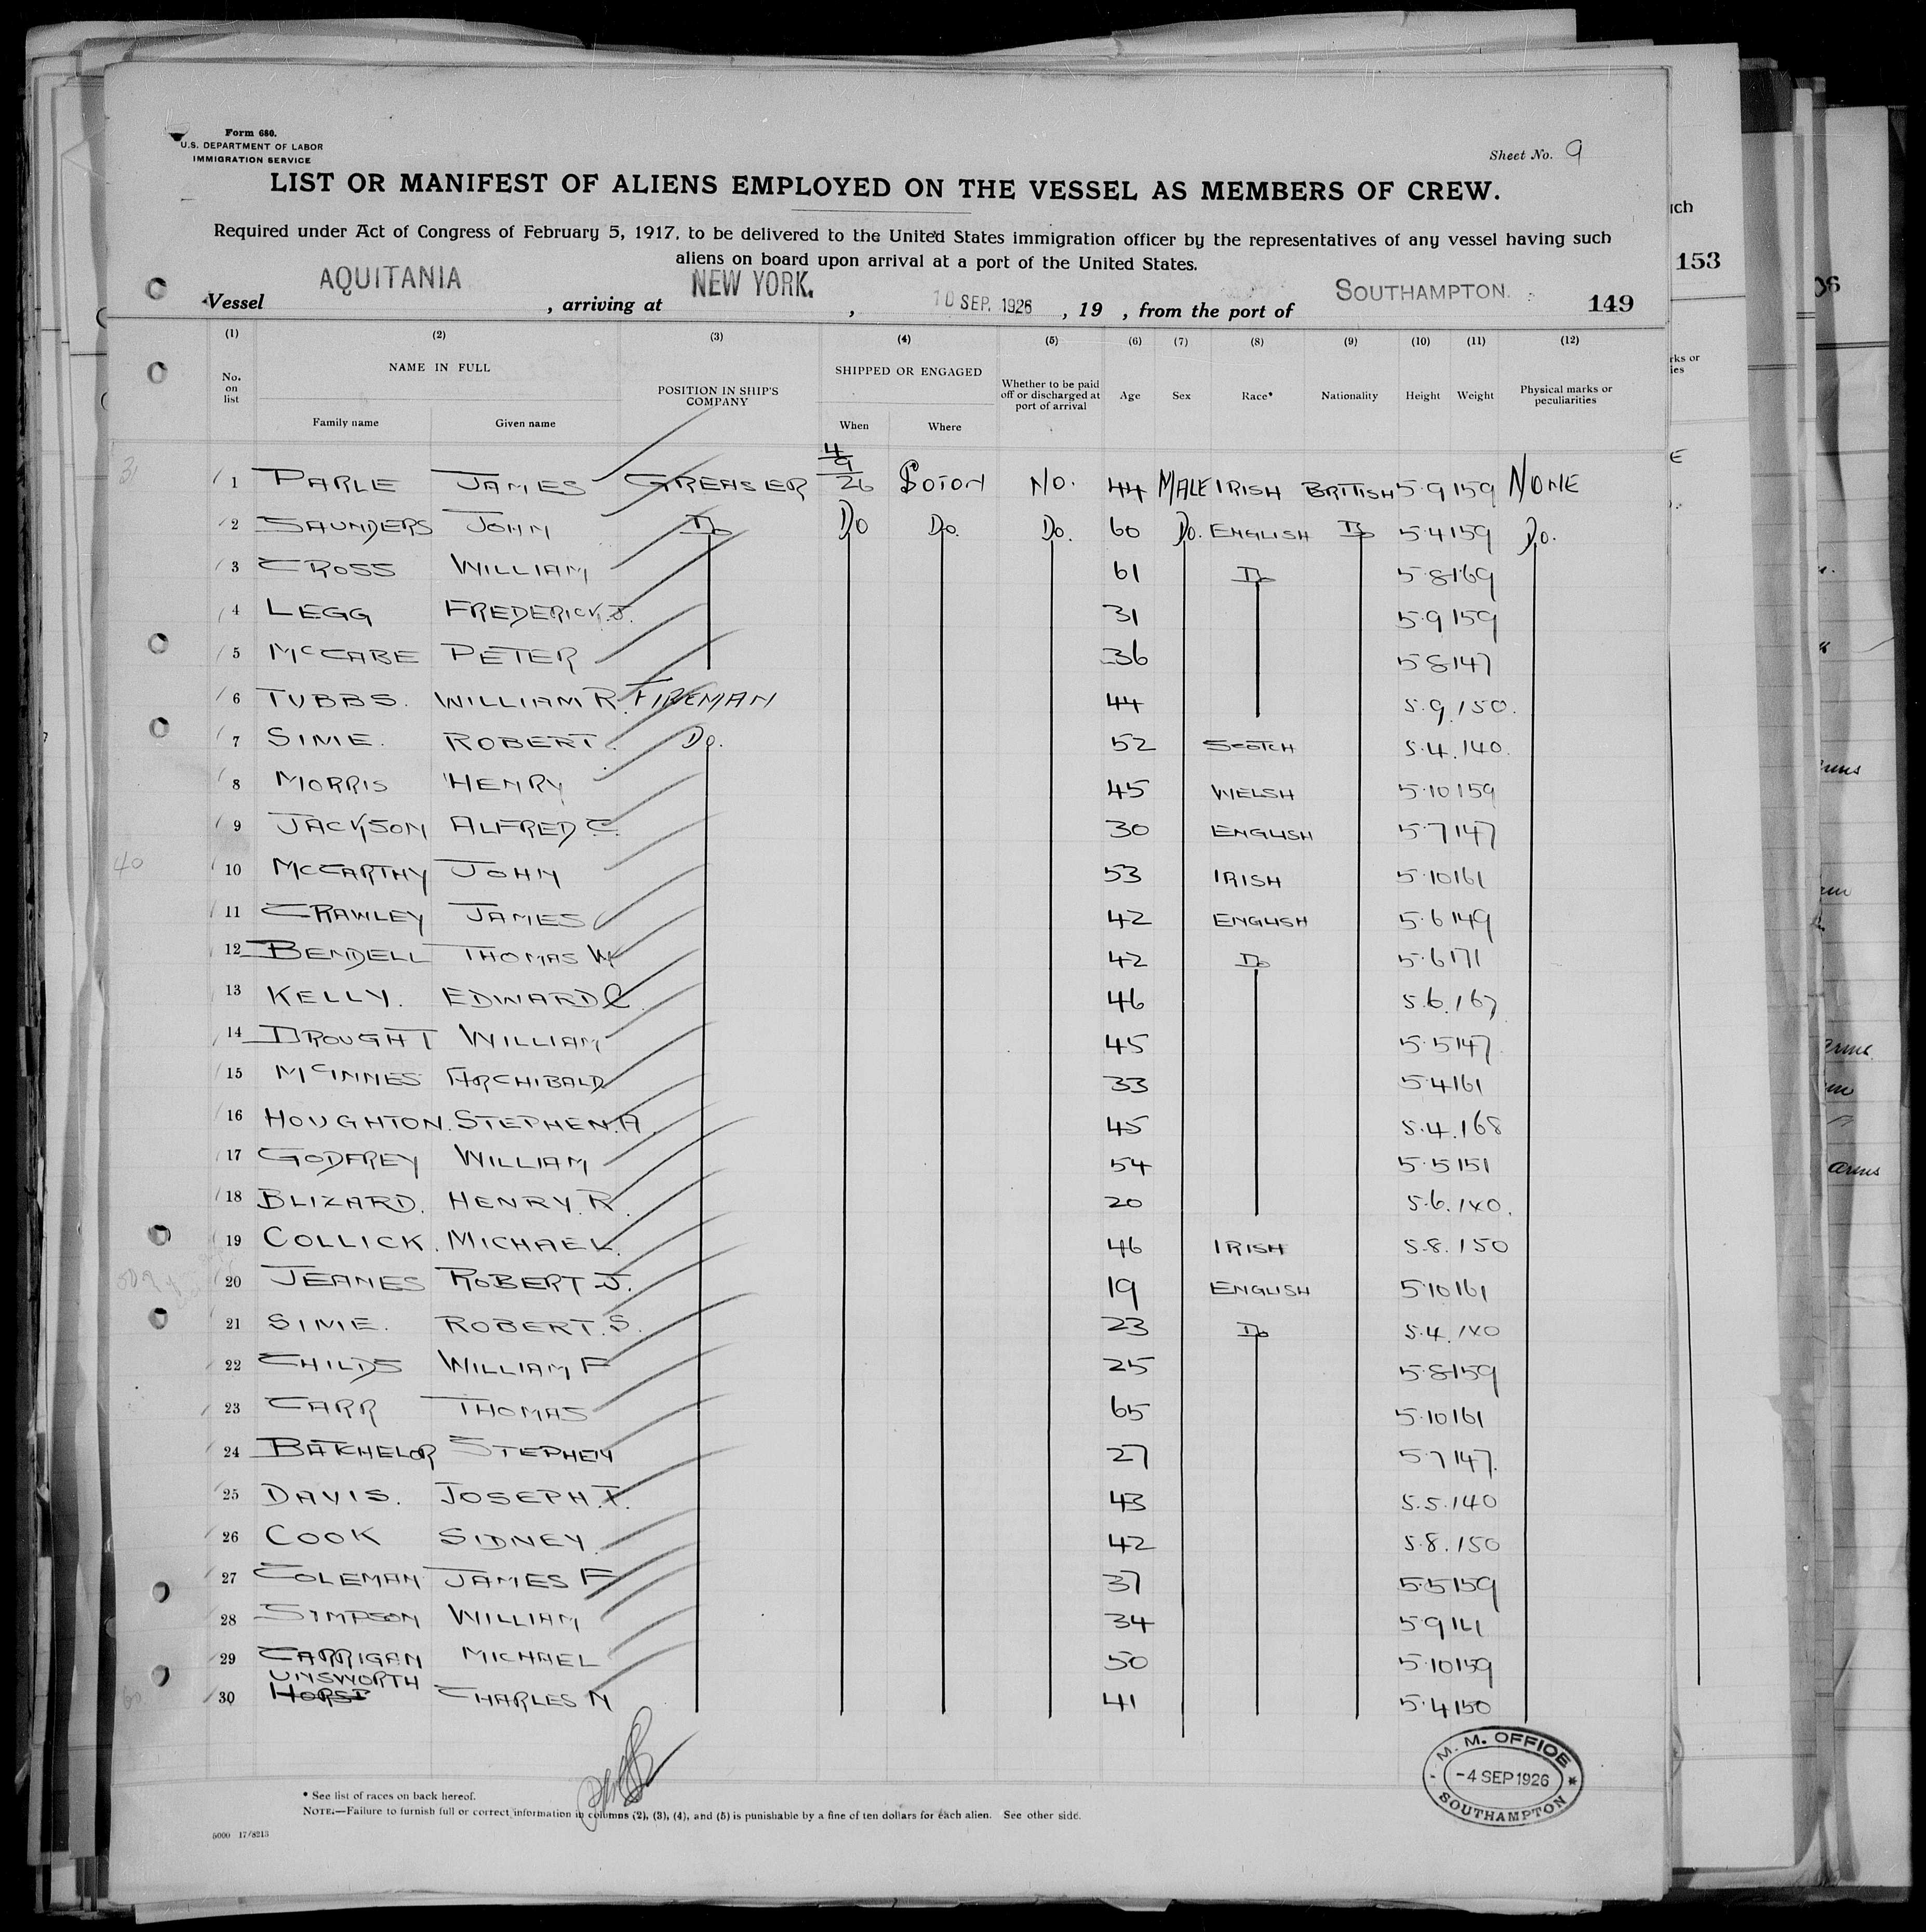 Form 680.
U.S. DEPARTMENT OF LABOR
IMMIGRATION SERVICE
Sheet No. 9
LIST OR MANIFEST OF ALIENS EMPLOYED ON THE VESSEL AS MEMBERS OF CREW.
Required under Act of Congress of February 5, 1917, to be delivered to the United States immigration officer by the representatives of any vessel having such
aliens on board upon arrival at a port of the United States.
Vessel AQUITANIA, arriving at NEW YORK., 10 SEP. 1926, 19 , from the port of SOUTHAMPTON. 149
(1) (2) (3) (4) (5) (6) (7) (8) (9) (10) (11) (12)
No. on list NAME IN FULL POSITION IN SHIP'S COMPANY SHIPPED OR ENGAGED Whether to be paid off or discharged at port of arrival Age Sex Race* Nationality Height Weight Physical marks or peculiarities
Family name Given name When Where
31
1 PARLE JAMES GREASER 4/9/26 SOTON NO. 44 MALE IRISH BRITISH 5.9 159 NONE
2 SAUNDERS JOHN Do Do Do. Do. 60 Do. ENGLISH Do 5.4 159 Do.
3 CROSS WILLIAM 61 Do 5.8 169
4 LEGG FREDERICK.J. 31 5.9 159
5 McCABE PETER 36 5.8 147
6 TUBBS. WILLIAM R. FIREMAN 44 5.9.150.
7 SIME. ROBERT. Do. 52 SCOTCH 5.4.140.
8 MORRIS HENRY 45 WELSH 5.10 159
9 JACKSON ALFRED C. 30 ENGLISH 5.7 147
40
10 McCARTHY JOHN 53 IRISH 5.10 161
11 CRAWLEY JAMES 42 ENGLISH 5.6 149
12 BENDELL THOMAS W 42 Do 5.6 171
13 KELLY. EDWARD C. 46 5.6.167
14 DROUGHT WILLIAM 45 5.5 147
15 McINNES ARCHIBALD 33 5.4 161
16 HOUGHTON. STEPHEN.A. 45 5.4.168
17 GODFREY WILLIAM 54 5.5 151
18 BLIZARD. HENRY.R. 20 5.6.140.
19 COLLICK. MICHAEL. 46 IRISH 5.8.150
20 JEANES ROBERT J. 19 ENGLISH 5.10 161
21 SIME. ROBERT.S. 23 Do 5.4.140
22 CHILDS WILLIAM F 25 5.8 159
23 CARR THOMAS 65 5.10 161
24 BATCHELOR STEPHEN 27 5.7 147.
25 DAVIS. JOSEPH. 43 5.5.140
26 COOK SIDNEY. 42 5.8.150
27 COLEMAN JAMES F 37 5.5 159
28 SIMPSON WILLIAM 34 5.9 141
29 CARRIGAN MICHAEL 50 5.10 159
UNSWORTH
60
30 HORST CHARLES N 41 5.4 150
M. M. OFFICE
-4 SEP 1926
SOUTHAMPTON
* See list of races on back hereof.
NOTE.—Failure to furnish full or correct information in columns (2), (3), (4), and (5) is punishable by a fine of ten dollars for each alien. See other side.
5000 17/8213
ich
153
rks or
ies
arms